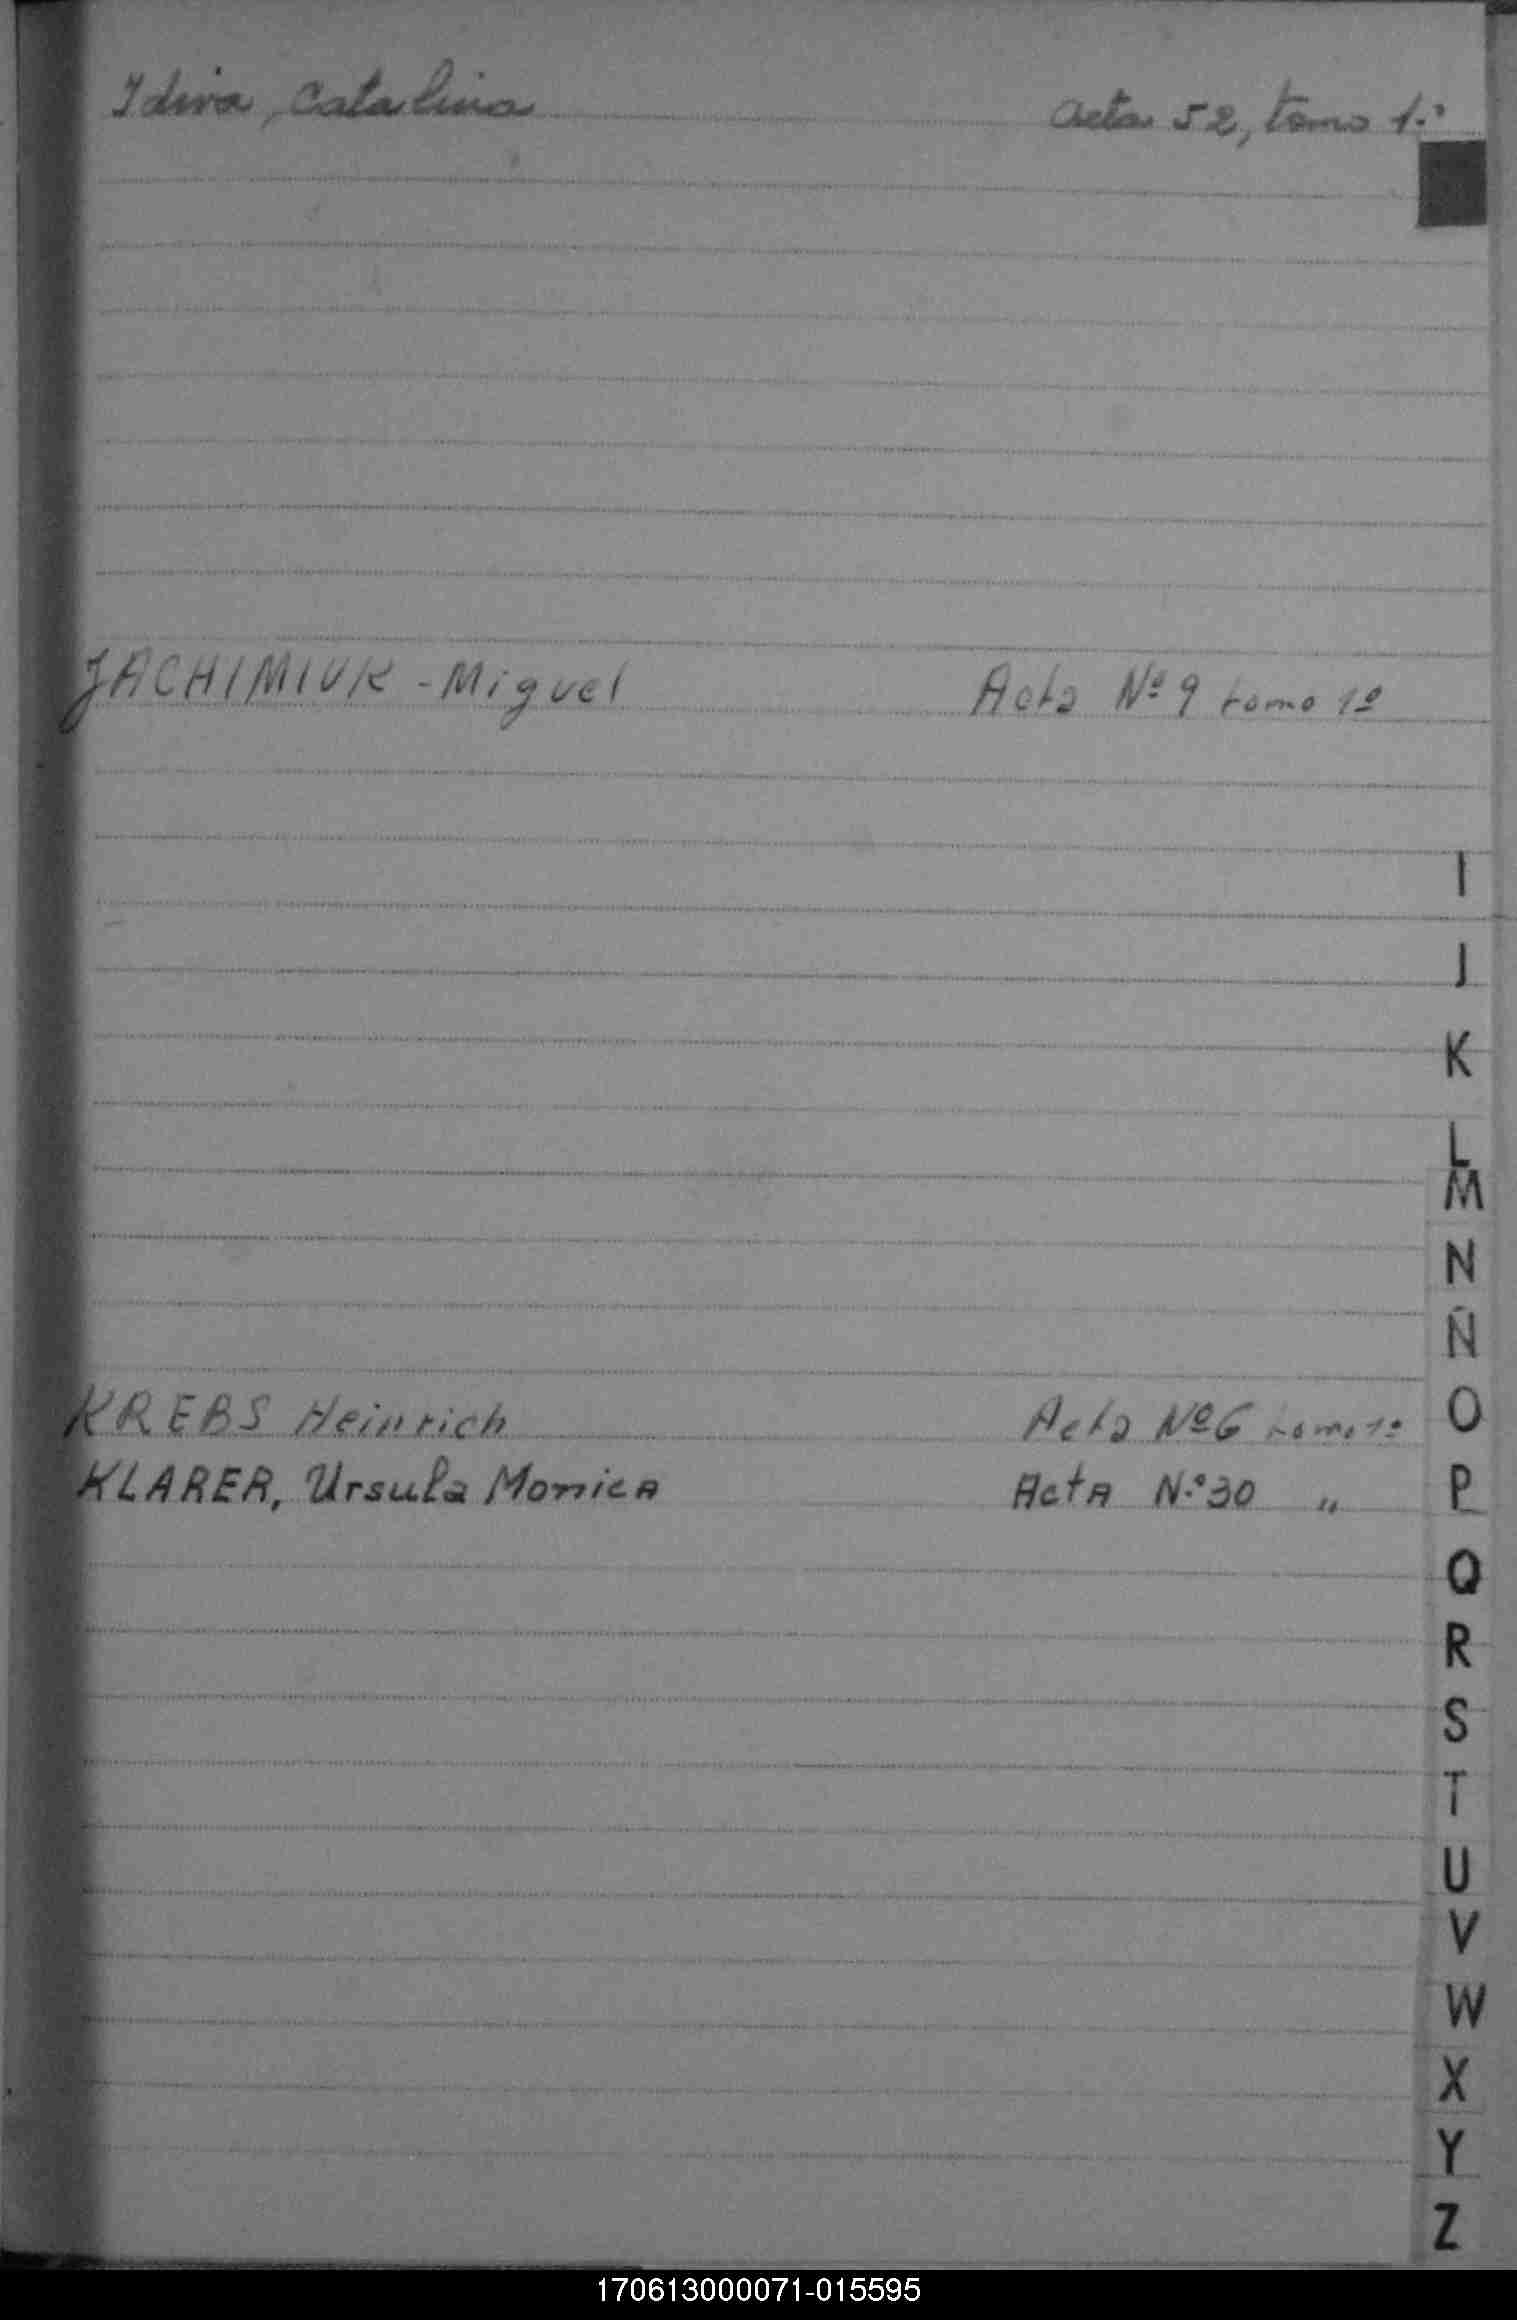 Idiva, Catalina Acta 52, tomo 1.º
JACHIMIUK - Miguel Acta Nº 9 tomo 1º
I
J
K
L
M
N
Ñ
KREBS Heinrich Acta Nº 6 tomo 1º
O
KLARER, Ursula Monica Acta N.º 30 "
P
Q
R
S
T
U
V
W
X
Y
Z
170613000071-015595